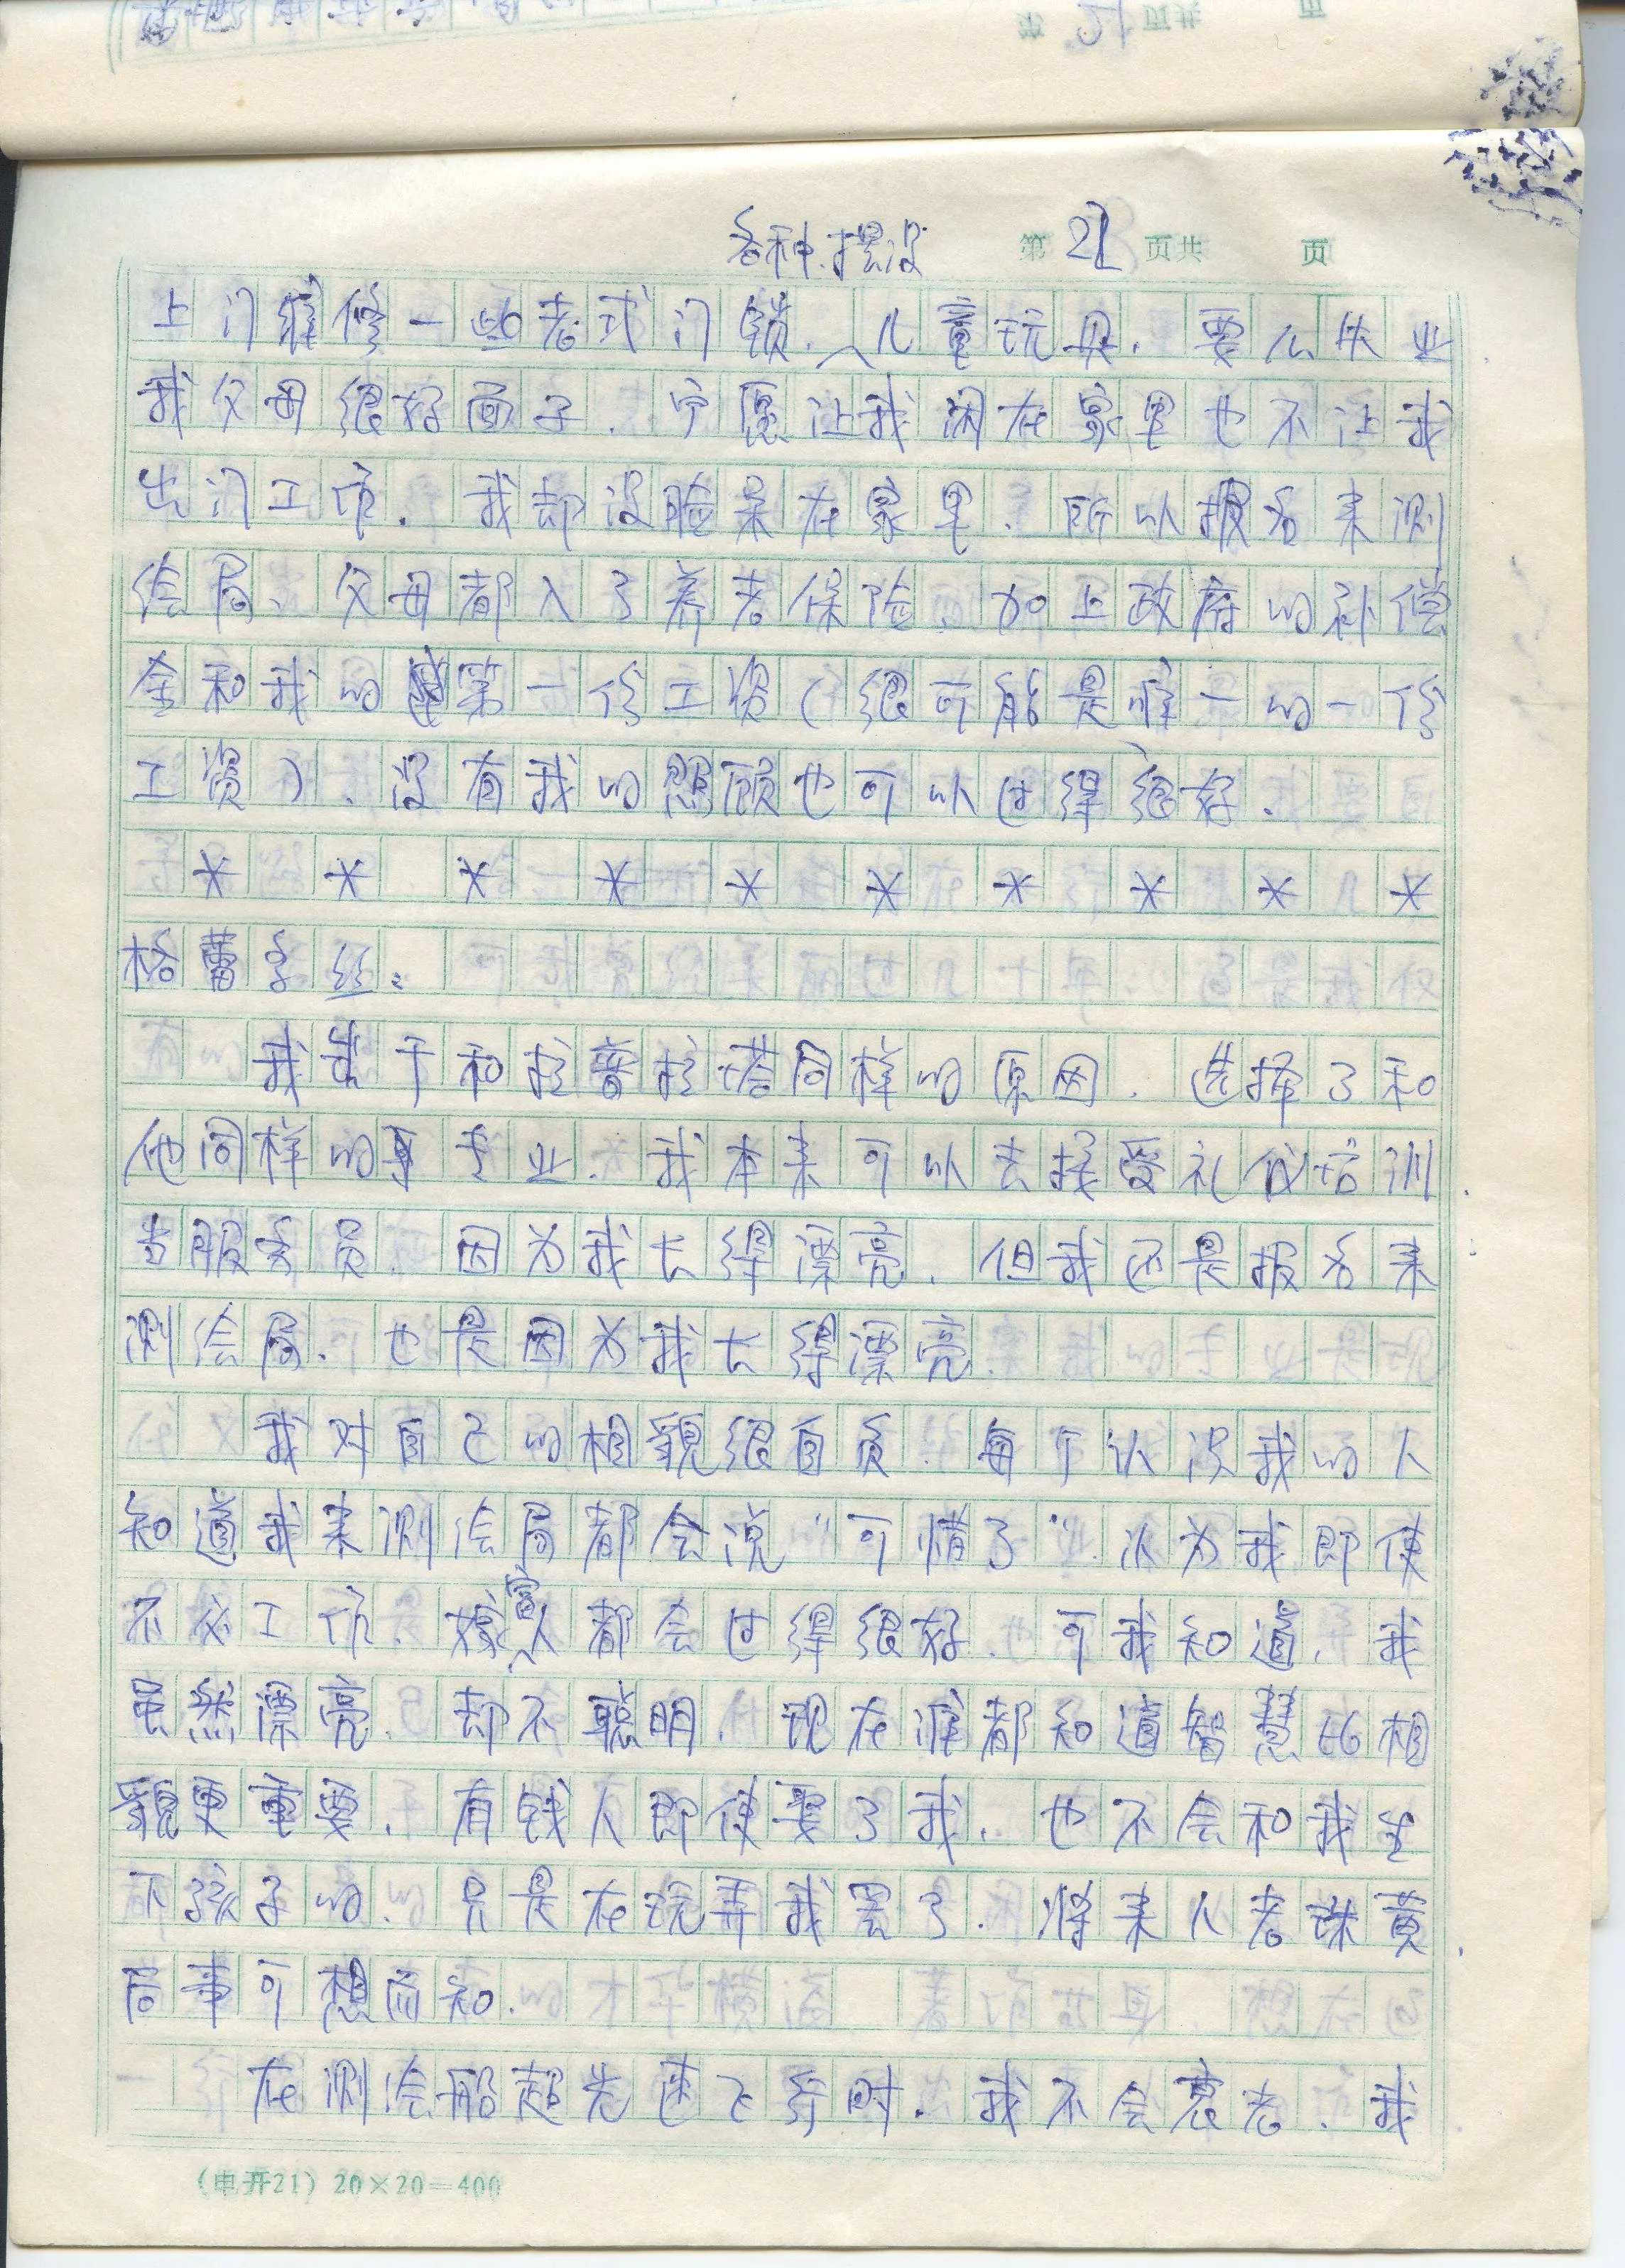 各种摆设
第21页共 页
上门维修一些老式门锁、儿童玩具,要么失业
我父母很好面子,宁愿让我闲在家里也不让我
出门工作。我却没脸呆在家里,所以报名来测
绘局、父母都入了养老保险,加上政府的补偿
金和我的第一份工资(很可能是唯一的一份
工资)、没有我的照顾也可以过得很好。
* * * * * * * * * *
格蕾孚丝:
我出于和拉普拉塔同样的原因,选择了和
他同样的专业。我本来可以去接受礼仪培训,
当服务员,因为我长得漂亮,但我还是报名来
测绘局,也是因为我长得漂亮
我对自己的相貌很自负,每个认识我的人
知道我来测绘局都会说“可惜了”,认为我即使
不必工作,嫁富人都会过得很好,可我知道,我
虽然漂亮,却不聪明,现在谁都知道智慧比相
貌更重要,有钱人即使娶了我,也不会和我生
下孩子的、只是在玩弄我罢了,将来人老珠黄,
局事可想而知.
在测绘船超光速飞行时,我不会衰老、我
(电开21)20×20=400